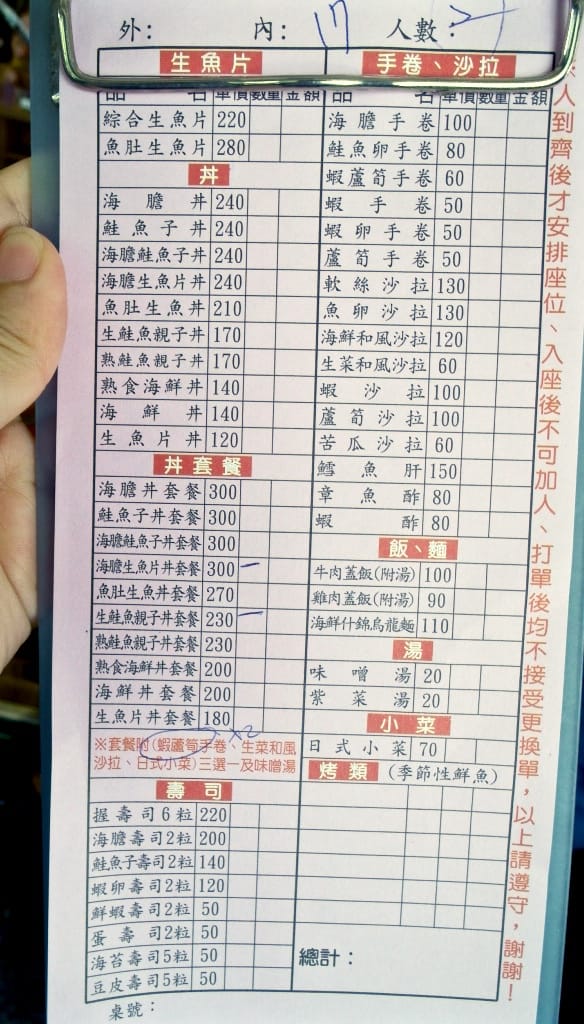 外： 內： 17 人數： 2
生魚片
品 名 單價 數量 金額
綜合生魚片 220
魚肚生魚片 280
丼
海膽丼 240
鮭魚子丼 240
海膽鮭魚子丼 240
海膽生魚片丼 240
魚肚生魚丼 210
生鮭魚親子丼 170
熟鮭魚親子丼 170
熟食海鮮丼 140
海鮮丼 140
生魚片丼 120
丼套餐
海膽丼套餐 300
鮭魚子丼套餐 300
海膽鮭魚子丼套餐 300
海膽生魚片丼套餐 300 一
魚肚生魚丼套餐 270
生鮭魚親子丼套餐 230 一
熟鮭魚親子丼套餐 230
熟食海鮮丼套餐 200
海鮮丼套餐 200
生魚片丼套餐 180
x2
※套餐附(蝦蘆筍手卷、生菜和風
沙拉、日式小菜)三選一及味噌湯
壽司
握壽司6粒 220
海膽壽司2粒 200
鮭魚子壽司2粒 140
蝦卵壽司2粒 120
鮮蝦壽司2粒 50
蛋壽司2粒 50
海苔壽司5粒 50
豆皮壽司5粒 50
桌號：
手卷、沙拉
品 名 單價 數量 金額
海膽手卷 100
鮭魚卵手卷 80
蝦蘆筍手卷 60
蝦手卷 50
蝦卵手卷 50
蘆筍手卷 50
軟絲沙拉 130
魚卵沙拉 130
海鮮和風沙拉 120
生菜和風沙拉 60
蝦沙拉 100
蘆筍沙拉 100
苦瓜沙拉 60
鱈魚肝 150
章魚酢 80
蝦酢 80
飯、麵
牛肉蓋飯(附湯) 100
雞肉蓋飯(附湯) 90
海鮮什錦烏龍麵 110
湯
味噌湯 20
紫菜湯 20
小菜
日式小菜 70
烤類 (季節性鮮魚)
總計：
※人到齊後才安排座位、入座後不可加人、打單後均不接受更換單，以上請遵守，謝謝！